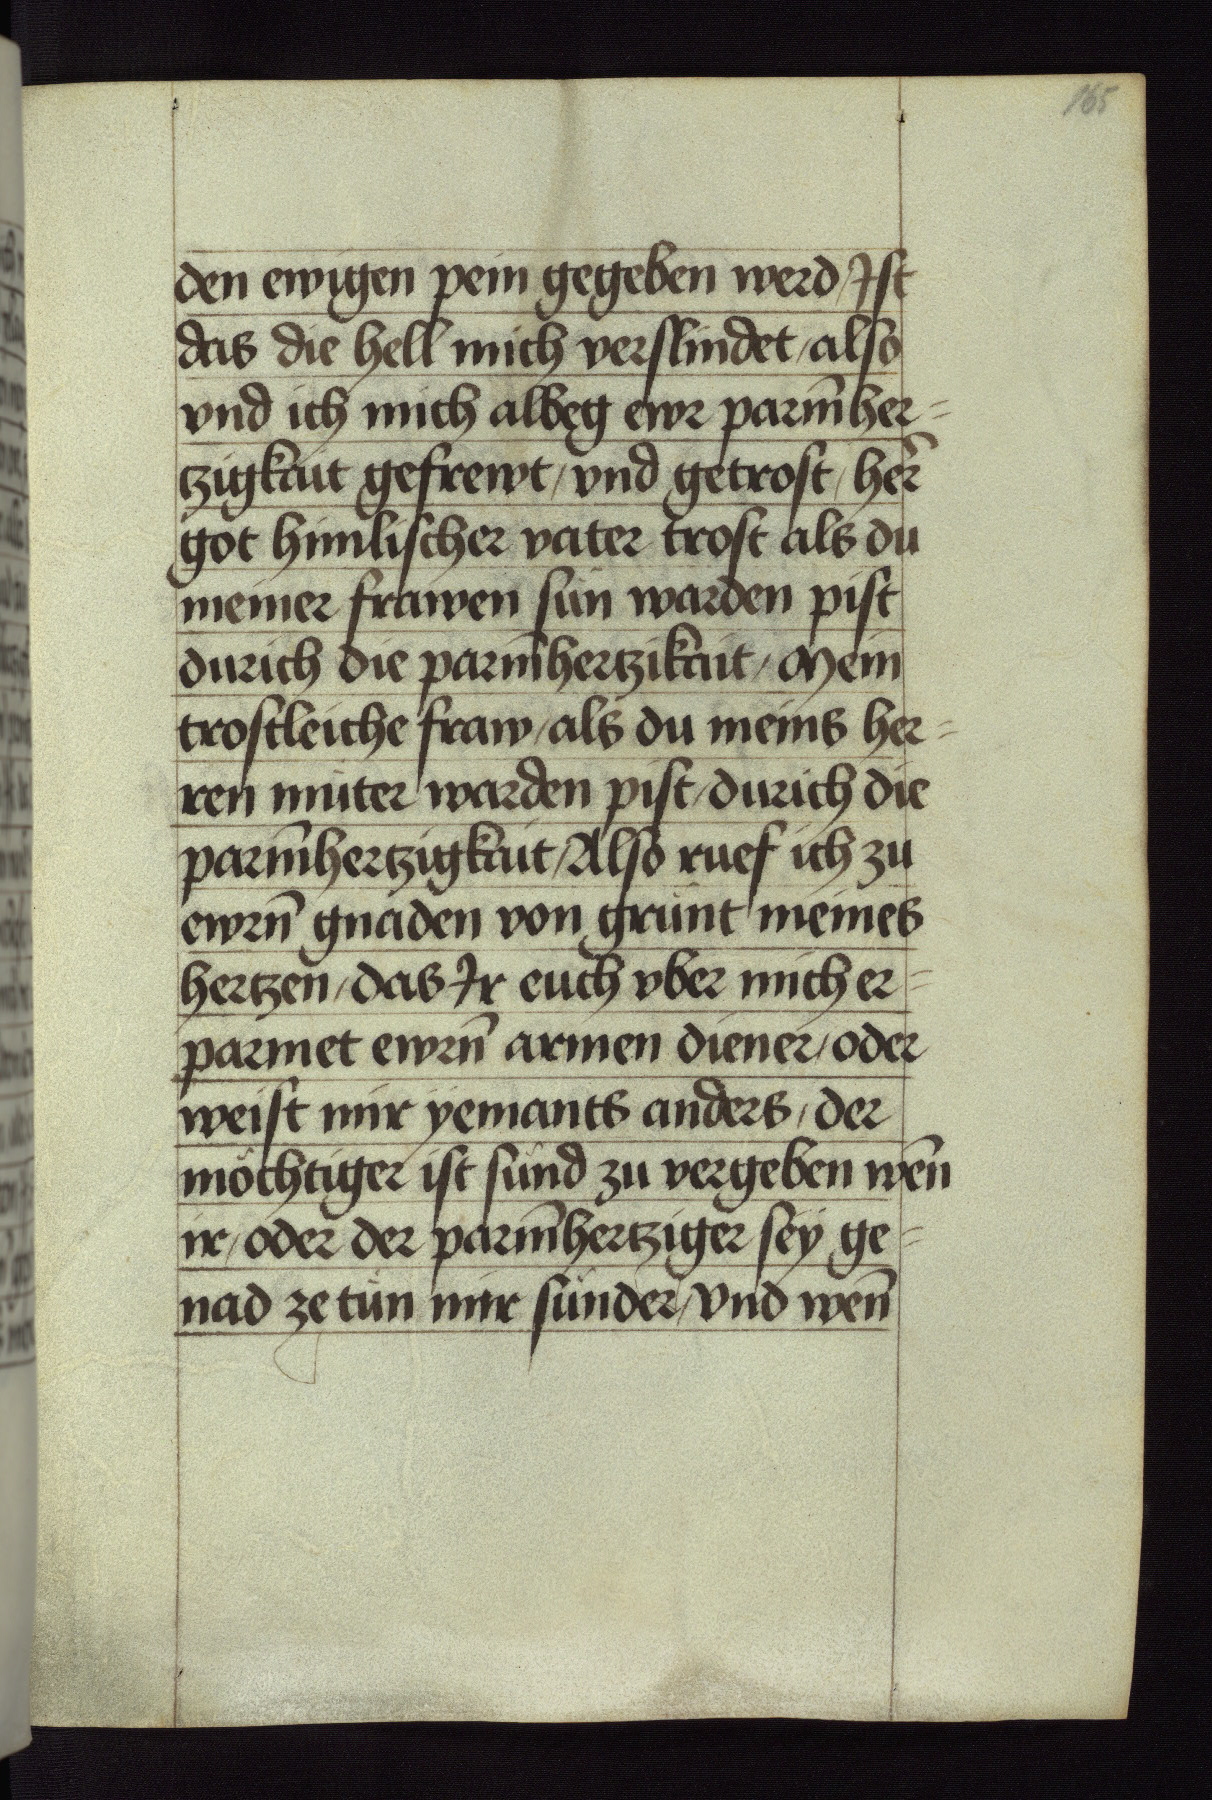 165
den ewigen pein gegeben werd / Ist
das die hell mich verslindet / also
vnd ich mich albeg ewr parm̄her=
tzigkait gefrewt / vnd getrost / her̄
got himlischer vater trost als du
meiner frawen sun warden pist
durich die parm̄hertzikait / Mein
trostleiche fraw / als du meins her=
ren muter warden pist / durich die
parm̄hertzigkait / Also ruef ich zu
ewrn̄ gnaden von grunt meines
hertzen / das Ir euch vber mich er=
parmet ewrn̄ armen diener / oder
weist mir yemants anders / der
möchtiger ist sünd zu vergeben wen̄
ir / oder der parm̄hertziger sey ge=
nad ze tün mir sünder / vnd wen̄